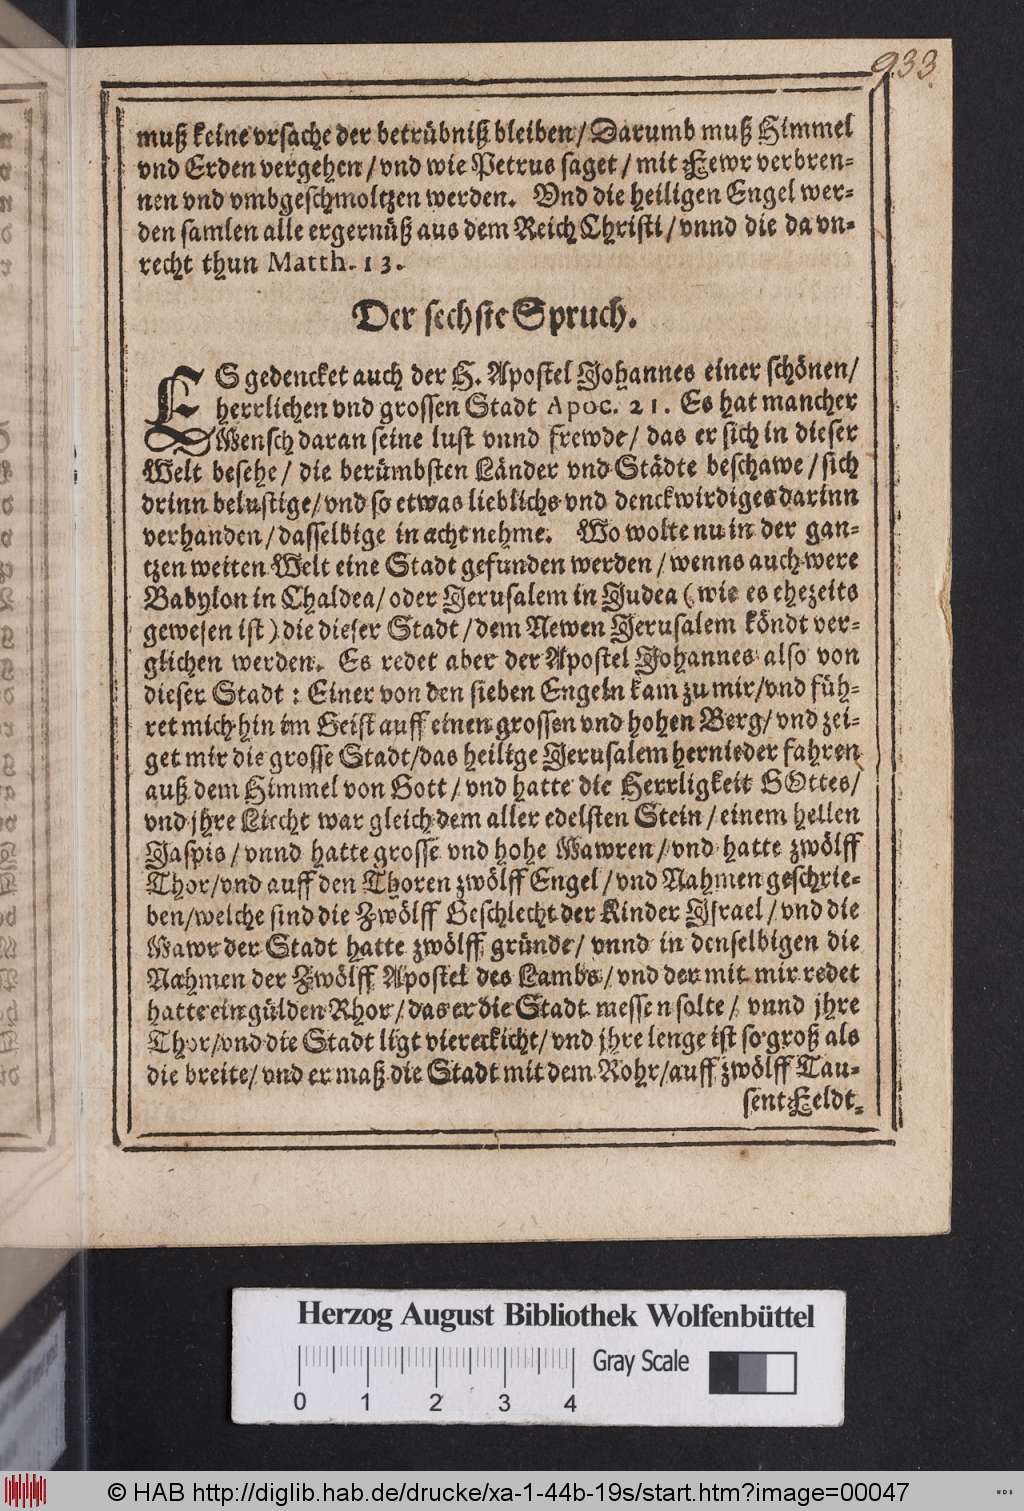 933
muß keine vrsache der betrübniß bleiben / Darumb muß Himmel
vnd Erden vergehen / vnd wie Petrus saget / mit Fewr verbren-
nen vnd vmbgeschmoltzen werden. Vnd die heiligen Engel wer-
den samlen alle ergernüß aus dem Reich Christi / vnnd die da vn-
recht thun Matth. 13.
Der sechste Spruch.
ES gedencket auch der H. Apostel Johannes einer schönen /
herrlichen vnd grossen Stadt Apoc. 21. Es hat mancher
Mensch daran seine lust vnnd frewde / das er sich in dieser
Welt besehe / die berümbsten Länder vnd Städte beschawe / sich
drinn belustige / vnd so etwas lieblichs vnd denckwirdiges darinn
verhanden / dasselbige in acht nehme. Wo wolte nu in der gan-
tzen weiten Welt eine Stadt gefunden werden / wenns auch were
Babylon in Chaldea / oder Jerusalem in Judea ( wie es ehezeits
gewesen ist ) die dieser Stadt / dem Newen Jerusalem köndt ver-
glichen werden. Es redet aber der Apostel Johannes also von
dieser Stadt : Einer von den sieben Engeln kam zu mir / vnd füh-
ret mich hin im Geist auff einen grossen vnd hohen Berg / vnd zei-
get mir die grosse Stadt / das heilige Jerusalem hernieder fahren
auß dem Himmel von Gott / vnd hatte die Herrligkeit GOttes /
vnd jhre Liecht war gleich dem aller edelsten Stein / einem hellen
Jaspis / vnnd hatte grosse vnd hohe Mawren / vnd hatte zwölff
Thor / vnd auff den Thoren zwölff Engel / vnd Nahmen geschrie-
ben / welche sind die Zwölff Geschlecht der Kinder Jsrael / vnd die
Mawr der Stadt hatte zwölff gründe / vnnd in denselbigen die
Nahmen der Zwölff Apostel des Lambs / vnd der mit mir redet
hatte ein gülden Rhor / das er die Stadt messen solte / vnnd jhre
Thor / vnd die Stadt ligt viereckicht / vnd jhre lenge ist so groß als
die breite / vnd er maß die Stadt mit dem Rohr / auff zwölff Tau-
sent Feldt-
Herzog August Bibliothek Wolfenbüttel
Gray Scale
0 1 2 3 4
© HAB http://diglib.hab.de/drucke/xa-1-44b-19s/start.htm?image=00047